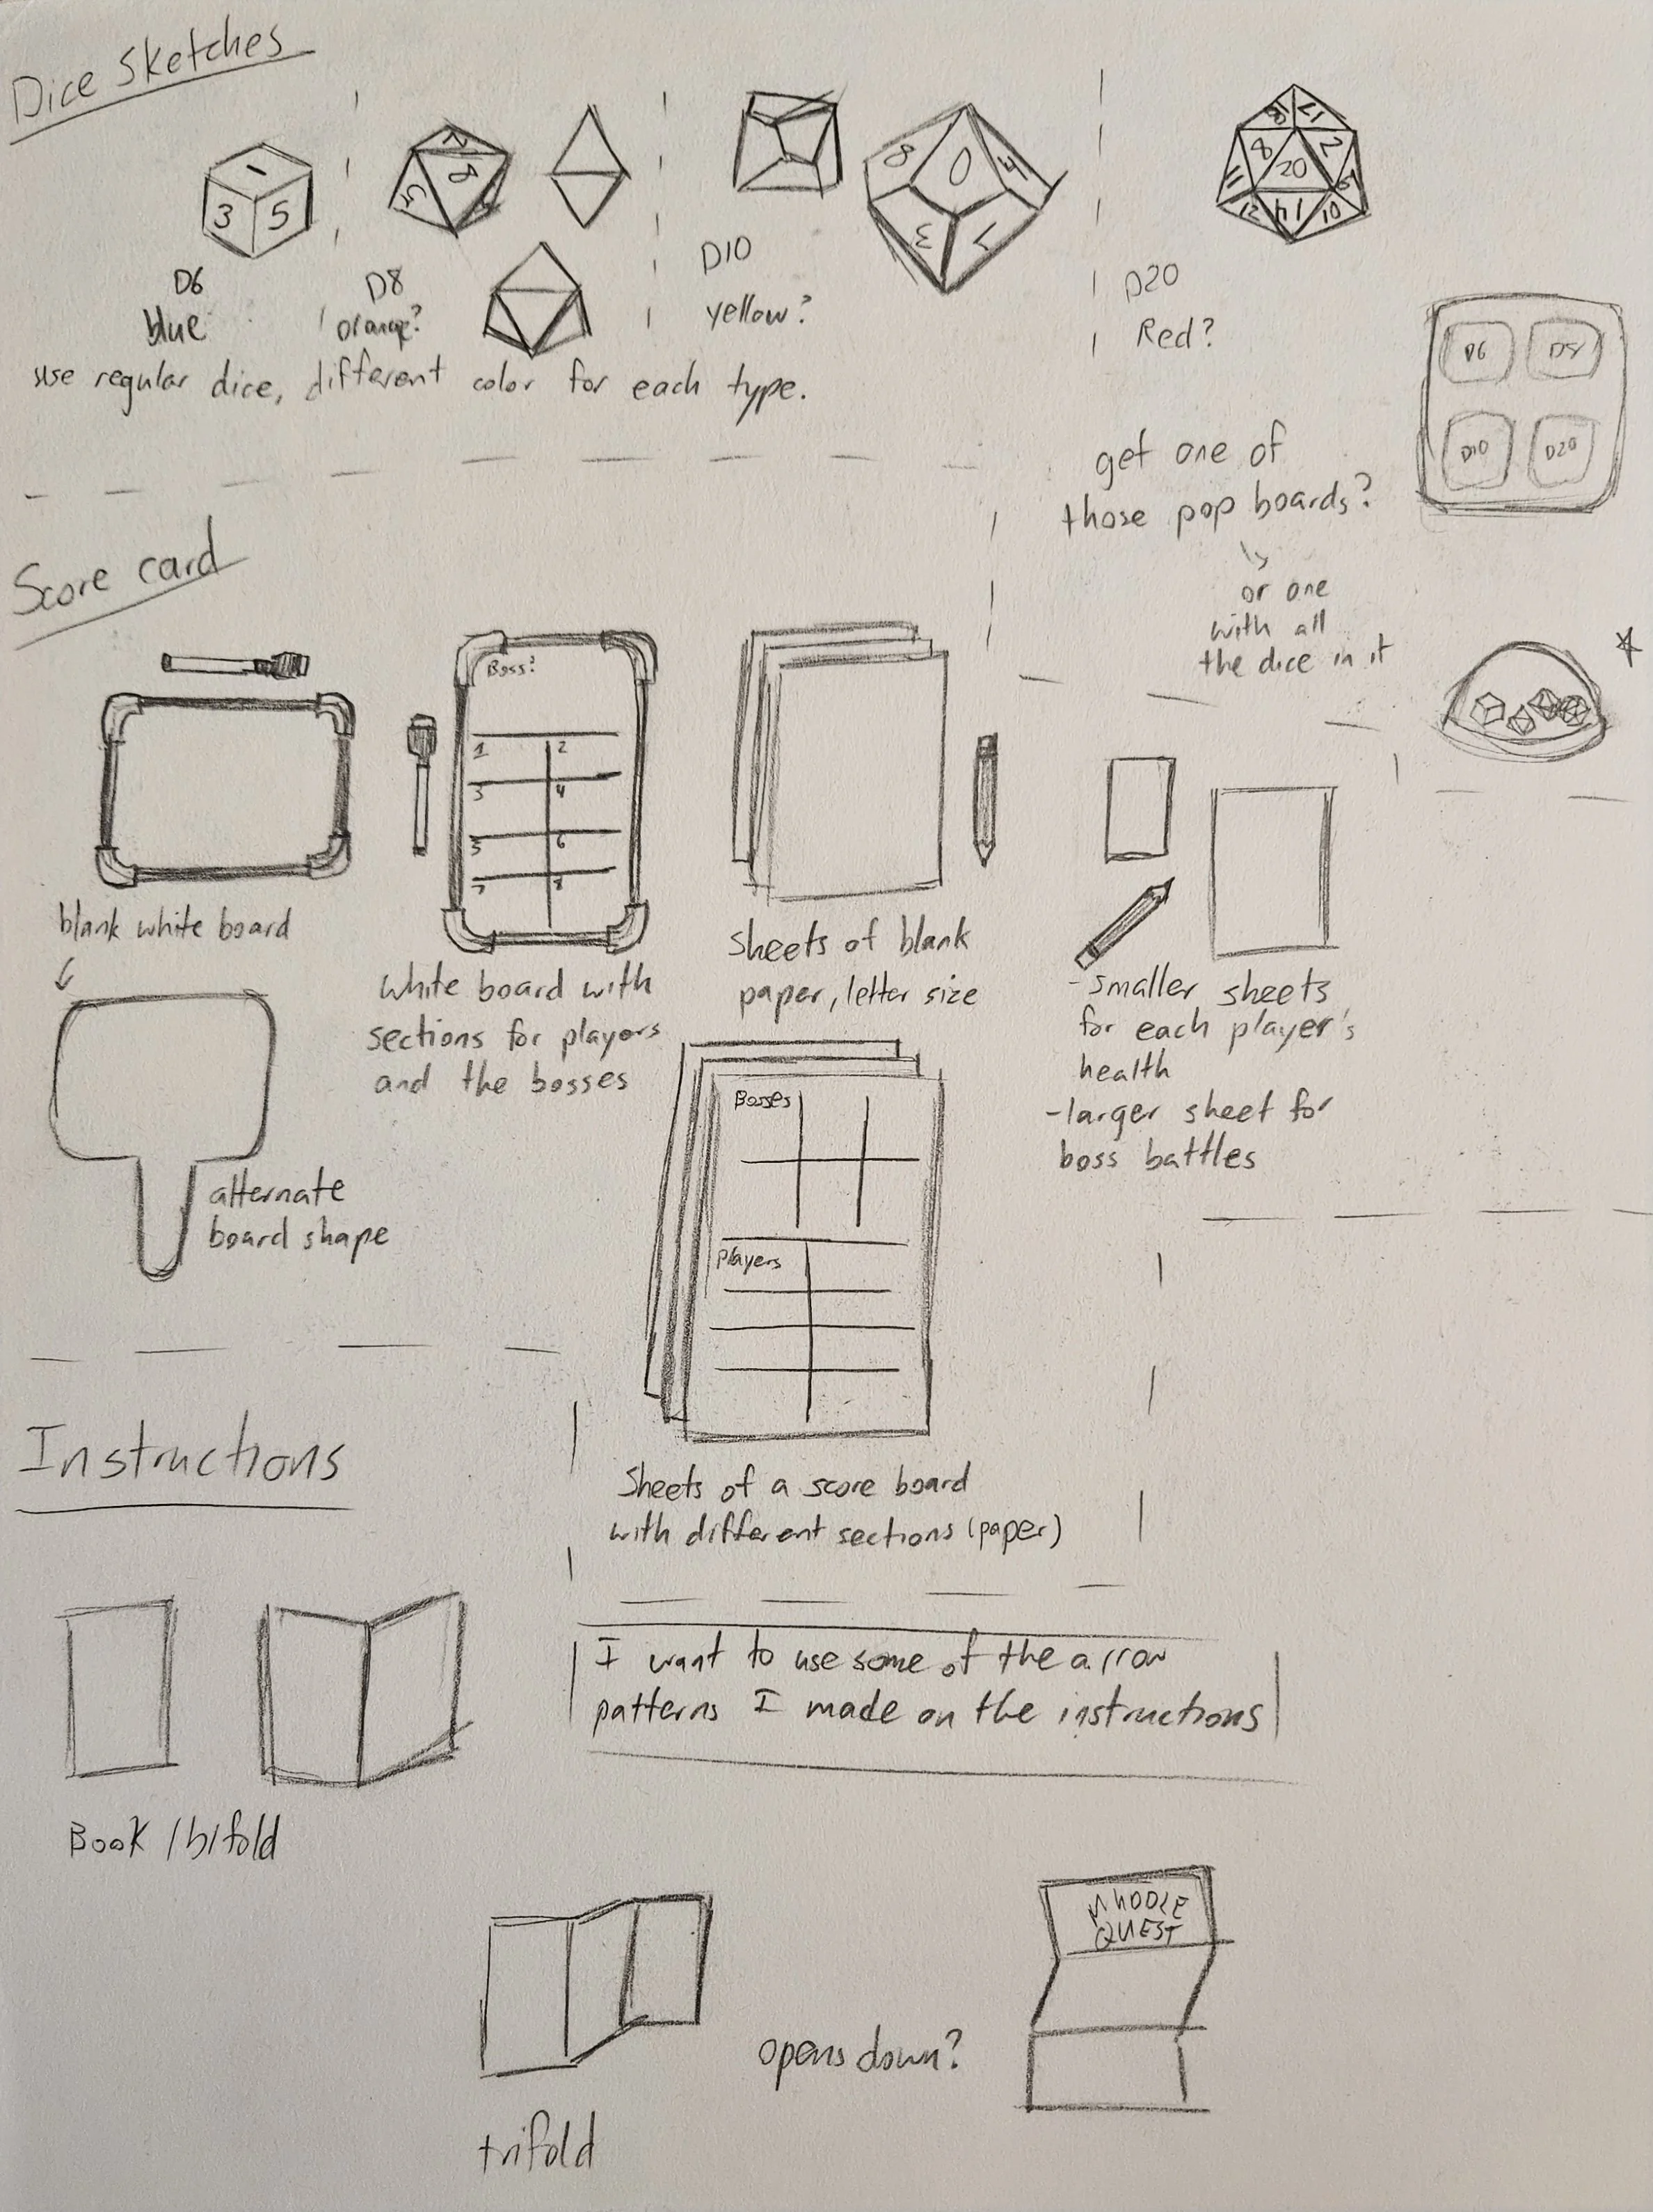 Dice Sketches
1
3 5
2
8
5
8 0 4
3 1
17
8 20 2
11
12 14 10
D6
blue
D8
orange?
D10
yellow?
D20
Red?
use regular dice, different color for each type.
D6 D8
D10 D20
get one of
those pop boards?
or one
with all
the dice in it
Score card
Boss?
1 2
3 4
5 6
7 8
blank white board
alternate
board shape
white board with
sections for players
and the bosses
sheets of blank
paper, letter size
-smaller sheets
for each player's
health
-larger sheet for
boss battles
Bosses
Players
Sheets of a score board
with different sections (paper)
Instructions
I want to use some of the arrow
patterns I made on the instructions
Book /bifold
trifold
opens down?
QUEST